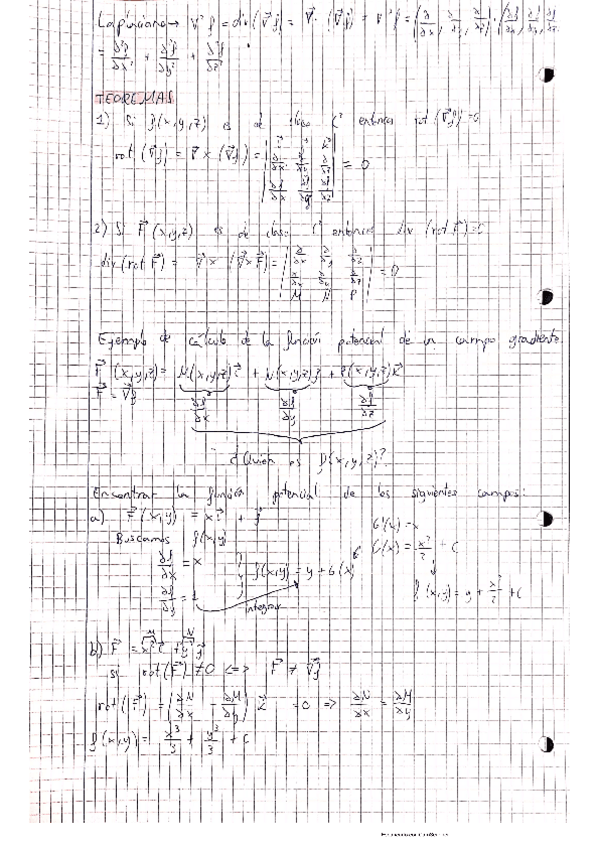 Laplaciano → ∇²f = div(∇⃗f) = ∇⃗·(∇⃗f) ∇²f = (∂/∂x, ∂/∂y, ∂/∂z)·(∂f/∂x, ∂f/∂y, ∂f/∂z)
= ∂²f/∂x² + ∂²f/∂y² + ∂²f/∂z²
TEOREMAS
1) Si f(x,y,z) es de clase C² entonces rot(∇⃗f)=0
rot(∇⃗f) = ∇⃗ × (∇⃗f) = | i⃗ j⃗ k⃗ |
| ∂/∂x ∂/∂y ∂/∂z | = 0
| ∂f/∂x ∂f/∂y ∂f/∂z |
2) Si F⃗(x,y,z) es de clase C² entonces div(rot F⃗)=0
div(rot F⃗) = ∇⃗ × (∇⃗×F⃗) = | ∂/∂x ∂/∂y ∂/∂z |
| ∂/∂x ∂/∂y ∂/∂z | = 0
| M N P |
Ejemplo de cálculo de la función potencial de un campo gradiente
F⃗(x,y,z) = M(x,y,z)i⃗ + N(x,y,z)j⃗ + P(x,y,z)k⃗
F⃗ = ∇⃗f
∂f/∂x ∂f/∂y ∂f/∂z
¿Quién es f(x,y,z)?
Encontrar la función potencial de los siguientes campos:
a) F⃗(x,y) = x i⃗ + j⃗
G'(x) = x
Buscamos f(x,y)
G(x) = x²/2 + C
∂f/∂x = x
f(x,y) = y + G(x)
f(x,y) = y + x²/2 + C
∂f/∂y = 1
integrar
b) F⃗ = x² i⃗ + y² j⃗
M N
si rot(F⃗) ≠ 0 <=> F⃗ ≠ ∇⃗f
rot(F⃗) = (∂N/∂x - ∂M/∂y) k⃗ = 0 => ∂N/∂x = ∂M/∂y
f(x,y) = x³/3 + y³/3 + C